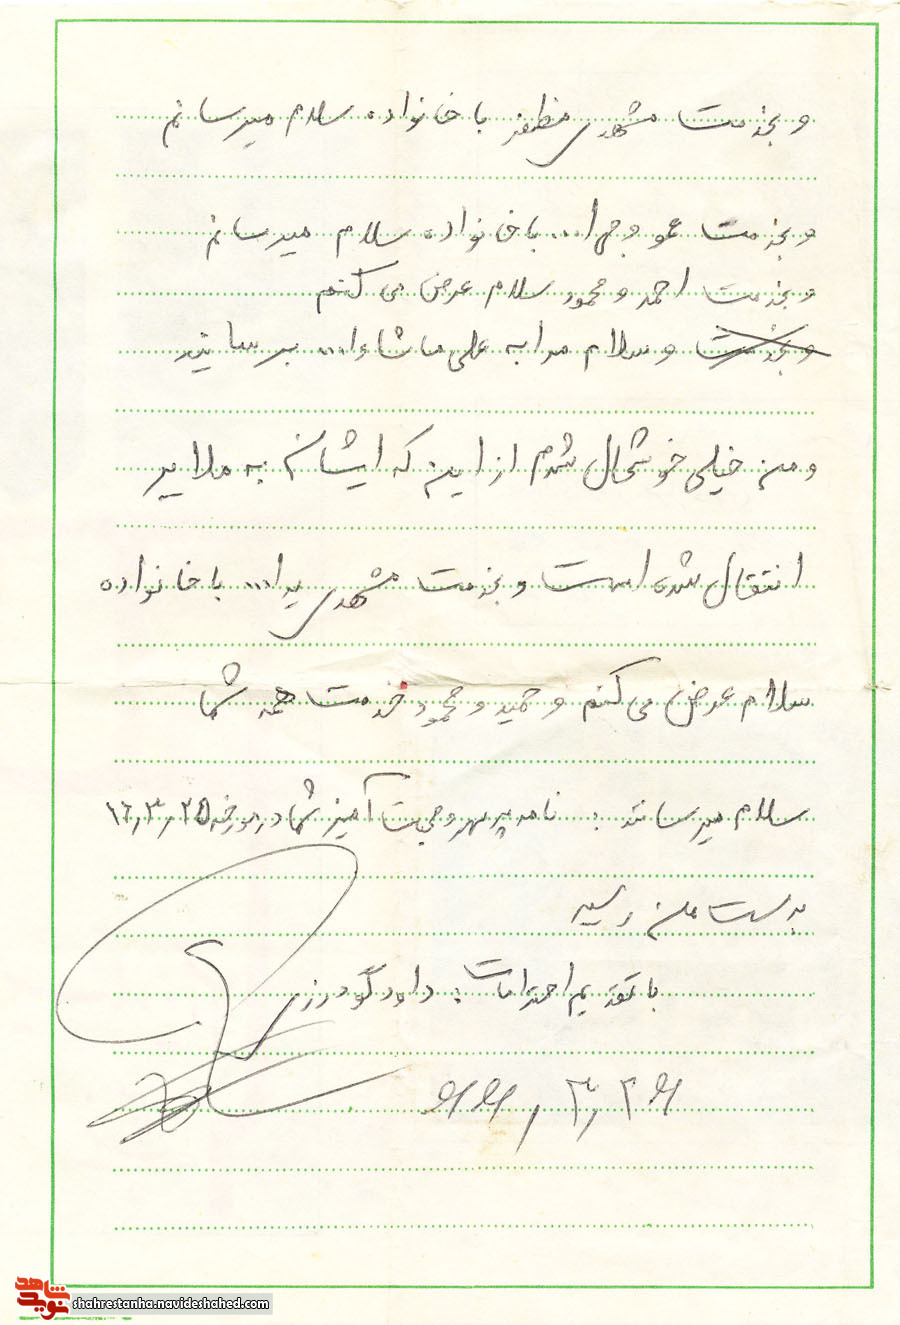 و بخدمت مشهدی مظفر با خانواده سلام میرسانم
و بخدمت عمو و جهرا... با خانواده سلام میرسانم
و بخدمت احمد و محمود سلام عرض می کنم
و بخدمت و سلام مرا به علی ماشاءا... برسانید
و من خیلی خوشحال شدم از این که ایشان به ملایر
انتقال شده است و بخدمت مشهدی یدا... با خانواده
سلام عرض می کنم و حمید و محمود خدمت همه شما
سلام میرسانند : نامه پر مهر و محبت آمیز شما در مورخه ۲۵ر۳ر
بدست من رسید
با تقدیم احترامات : داود گودرزی
شاهد
نوید
shahrestanha.navideshahed.com